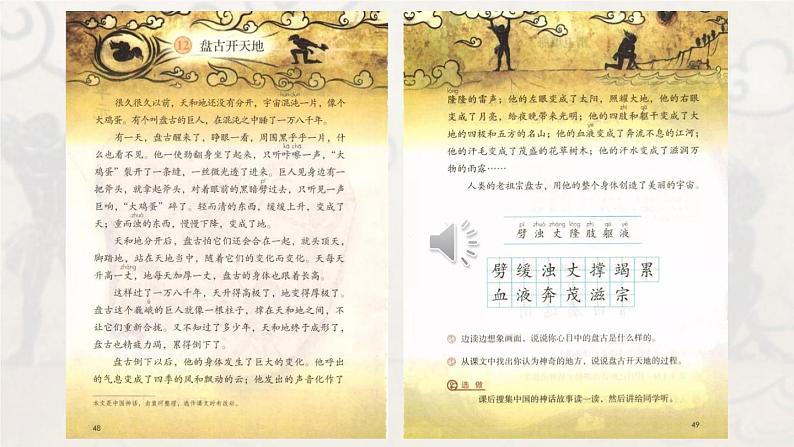 12 盘古开天地
hùn dùn
很久很久以前，天和地还没有分开，宇宙混沌一片，像个
大鸡蛋。有个叫盘古的巨人，在混沌之中睡了一万八千年。
有一天，盘古醒来了，睁眼一看，周围黑乎乎一片，什
kā chā
么也看不见。他一使劲翻身坐了起来，只听咔嚓一声，“大
鸡蛋”裂开了一条缝，一丝微光透了进来。巨人见身边有一
pī
把斧头，就拿起斧头，对着眼前的黑暗劈过去，只听见一声
巨响，“大鸡蛋”碎了。轻而清的东西，缓缓上升，变成了
zhuó
天；重而浊的东西，慢慢下降，变成了地。
天和地分开后，盘古怕它们还会合在一起，就头顶天，
脚踏地，站在天地当中，随着它们的变化而变化。天每天
zhàng
升高一丈，地每天加厚一丈，盘古的身体也跟着长高。
这样过了一万八千年，天升得高极了，地变得厚极了。
盘古这个巍峨的巨人就像一根柱子，撑在天和地之间，不
让它们重新合拢。又不知过了多少年，天和地终于成形了，
盘古也精疲力竭，累得倒下了。
盘古倒下以后，他的身体发生了巨大的变化。他呼出
的气息变成了四季的风和飘动的云；他发出的声音化作了
本文是中国神话，由袁珂整理，选作课文时有改动。
48
lóng
隆隆的雷声；他的左眼变成了太阳，照耀大地，他的右眼
zhī qū
变成了月亮，给夜晚带来光明；他的四肢和躯干变成了大
yè
地的四极和五方的名山；他的血液变成了奔流不息的江河；
他的汗毛变成了茂盛的花草树木；他的汗水变成了滋润万
物的雨露……
人类的老祖宗盘古，用他的整个身体创造了美丽的宇宙。
pī zhuó zhàng lóng zhī qū yè
劈 浊 丈 隆 肢 躯 液
劈 缓 浊 丈 撑 竭 累
血 液 奔 茂 滋 宗
边读边想象画面，说说你心目中的盘古是什么样的。
从课文中找出你认为神奇的地方，说说盘古开天地的过程。
选做
课后搜集中国的神话故事读一读，然后讲给同学听。
49